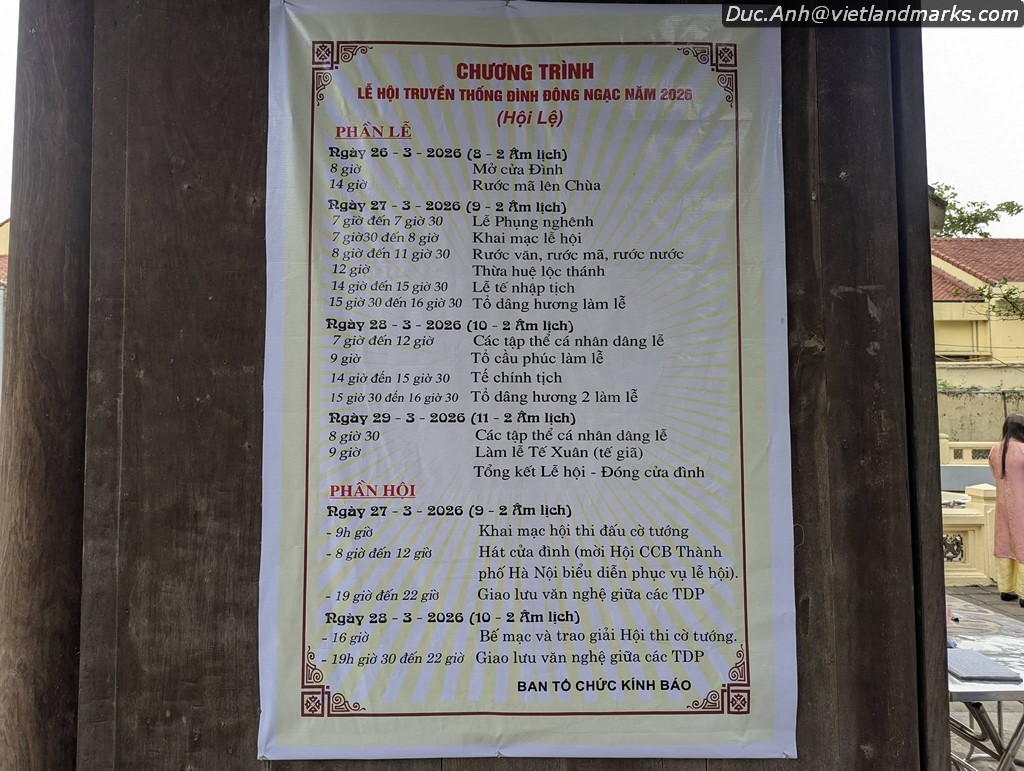 Duc.Anh@vietlandmarks.com
CHƯƠNG TRÌNH
LỄ HỘI TRUYỀN THỐNG ĐÌNH ĐÔNG NGẠC NĂM 2026
(Hội Lệ)
PHẦN LỄ
Ngày 26 - 3 - 2026 (8 - 2 Âm lịch)
8 giờ Mở cửa Đình
14 giờ Rước mã lên Chùa
Ngày 27 - 3 - 2026 (9 - 2 Âm lịch)
7 giờ đến 7 giờ 30 Lễ Phụng nghênh
7 giờ30 đến 8 giờ Khai mạc lễ hội
8 giờ đến 11 giờ 30 Rước văn, rước mã, rước nước
12 giờ Thừa huệ lộc thánh
14 giờ đến 15 giờ 30 Lễ tế nhập tịch
15 giờ 30 đến 16 giờ 30 Tổ dâng hương làm lễ
Ngày 28 - 3 - 2026 (10 - 2 Âm lịch)
7 giờ đến 12 giờ Các tập thể cá nhân dâng lễ
9 giờ Tổ cầu phúc làm lễ
14 giờ đến 15 giờ 30 Tế chính tịch
15 giờ 30 đến 16 giờ 30 Tổ dâng hương 2 làm lễ
Ngày 29 - 3 - 2026 (11 - 2 Âm lịch)
8 giờ 30 Các tập thể cá nhân dâng lễ
9 giờ Làm lễ Tế Xuân (tế giã)
Tổng kết Lễ hội - Đóng cửa đình
PHẦN HỘI
Ngày 27 - 3 - 2026 (9 - 2 Âm lịch)
- 9h giờ Khai mạc hội thi đấu cờ tướng
- 8 giờ đến 12 giờ Hát cửa đình (mời Hội CCB Thành
phố Hà Nội biểu diễn phục vụ lễ hội).
- 19 giờ đến 22 giờ Giao lưu văn nghệ giữa các TDP
Ngày 28 - 3 - 2026 (10 - 2 Âm lịch)
- 16 giờ Bế mạc và trao giải Hội thi cờ tướng.
- 19h giờ 30 đến 22 giờ Giao lưu văn nghệ giữa các TDP
BAN TỔ CHỨC KÍNH BÁO